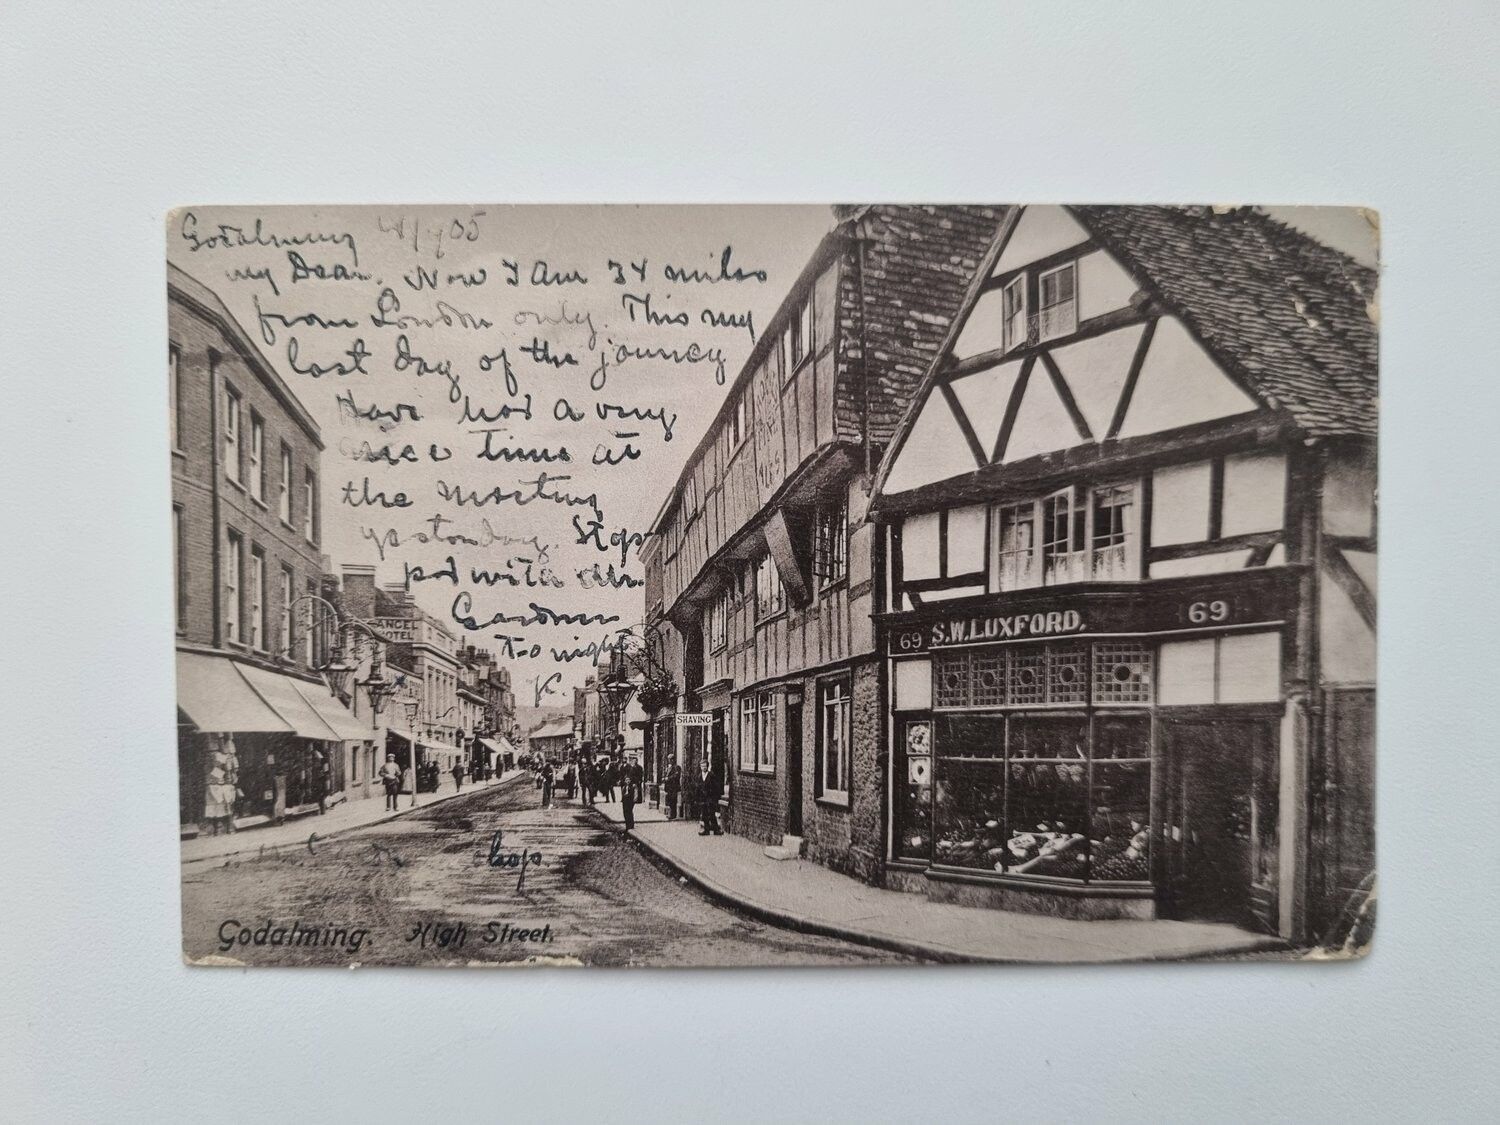 Godalming 4/7/05
my Dear. Now I am 34 miles
from London only. This my
last day of the journey
Have had a very
nice time at
the meeting
yesterday. Stop
ped with Mr.
Gardner
To night
K.
ANGEL
HOTEL
SHAVING
69 S.W.LUXFORD. 69
shop.
Godalming. High Street.